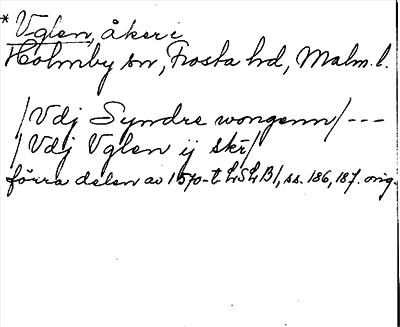 * Vglen, åker i
Holmby sn, Frosta hd, Malm. l.
/Vdj Syndre wongenn/ ---
/Vdj Vglen ij skr/
förra delen av 1570-t. LSLB 1, ss. 186, 187. orig.